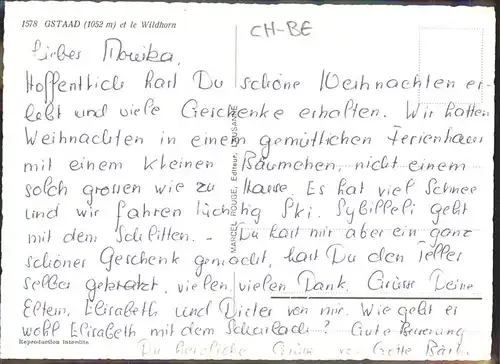 1578 GSTAAD (1052 m) et le Wildhorn
CH-BE
Liebes Monika,
Hoffentlich hast Du schöne Weihnachten er-
lebt und viele Geschenke erhalten. Wir hatten
Weihnachten in einem gemütlichen Ferienhaus
mit einem kleinen Bäumchen, nicht einem
solch grossen wie zu Hause. Es hat viel Schnee
und wir fahren tüchtig Ski. Sybilleli geht
mit dem Schlitten. - Du hast mir aber ein ganz
schönes Geschenk gemacht, hast Du den Teller
selber gekratzt, vielen, vielen Dank. Grüsse Deine
Eltern, Elisabeth und Dieter von mir. Wie geht es
wohl Elisabeth mit dem Scharlach? Gute Besserung
Dir herzliche Grüsse Gotte
MARCEL ROUGE, Editeur, LAUSANNE
Reproduction interdite